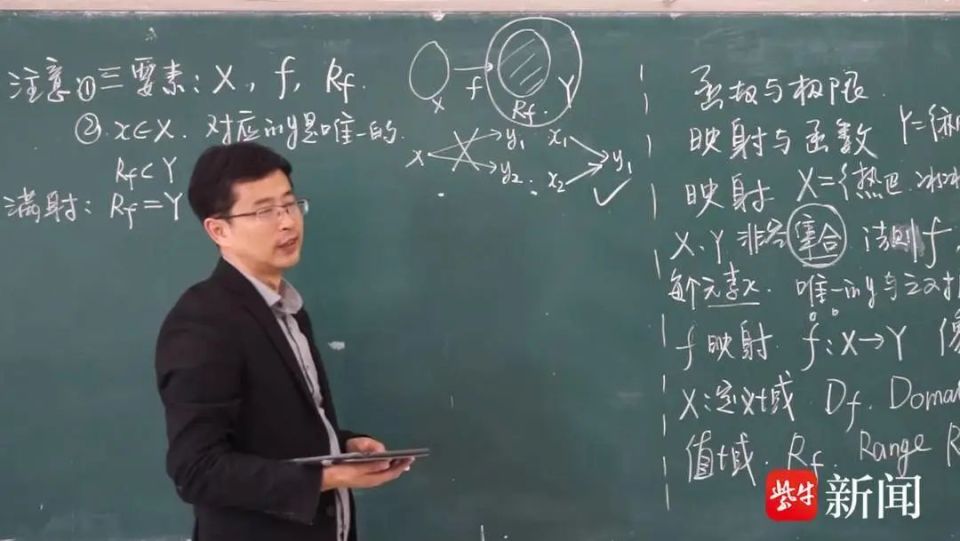 注意①三要素：X, f, Rf.
② x∈X. 对应的y是唯一的.
Rf⊂Y
满射：Rf=Y
X
f
Rf.
Y
x
y₁
y₂
x₁
x₂
y₁
函数与极限.
映射与函数 Y={
映射 X={热巴.冰冰
X.Y 非空集合 法则f,
每个元素x. 唯一的y与之对
f映射. f:X→Y 像
X:定义域 Df. Domai
值域. Rf. Range R
紫牛新闻